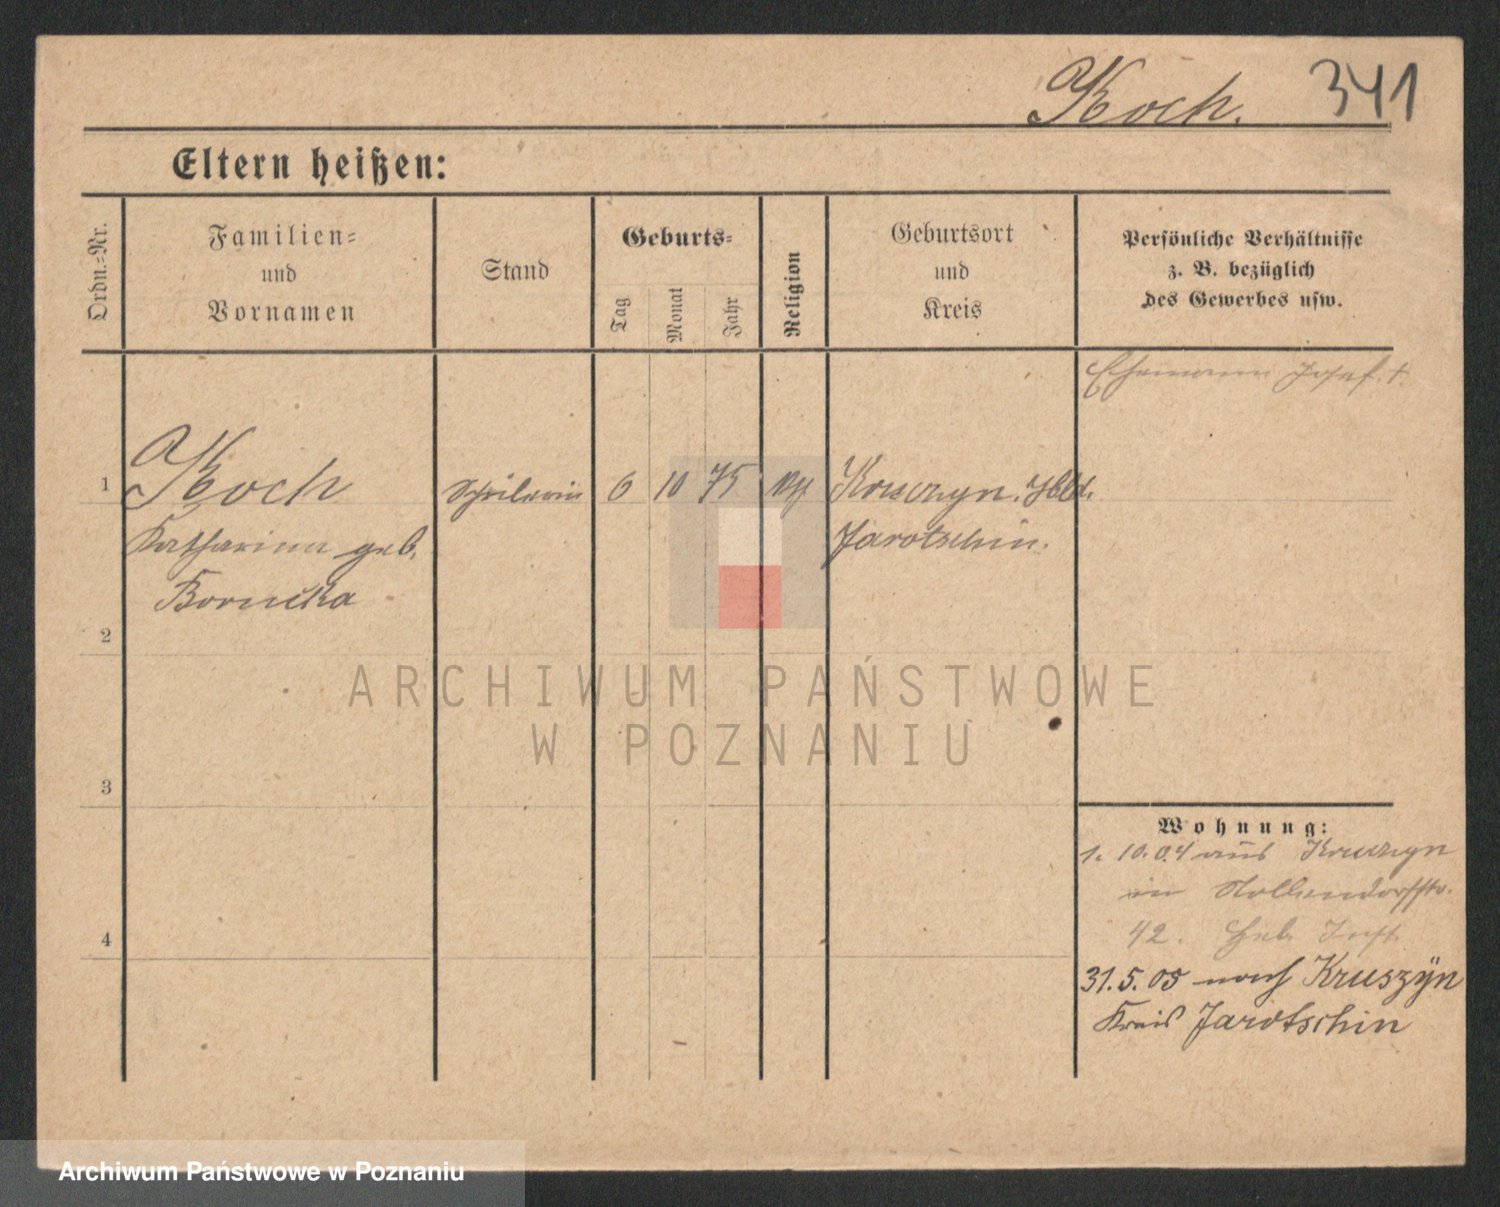 Koch. 341
Eltern heißen:
Ordn.=Nr.
Familien=
und
Vornamen
Stand
Geburts=
Tag
Monat
Jahr
Religion
Geburtsort
und
Kreis
Persönliche Verhältnisse
z. B. bezüglich
des Gewerbes usw.
Ehemann Josef †.
1 Koch 6 10 75
Katharina geb. Jarotschin.
2
3
4
Wohnung:
1. 10.04 aus Kruczyn
in Nollendorfstr.
42.
31.5.05 nach Kruszÿn
Kreis Jarotschin
ARCHIWUM PAŃSTWOWE
W POZNANIU
Archiwum Państwowe w Poznaniu